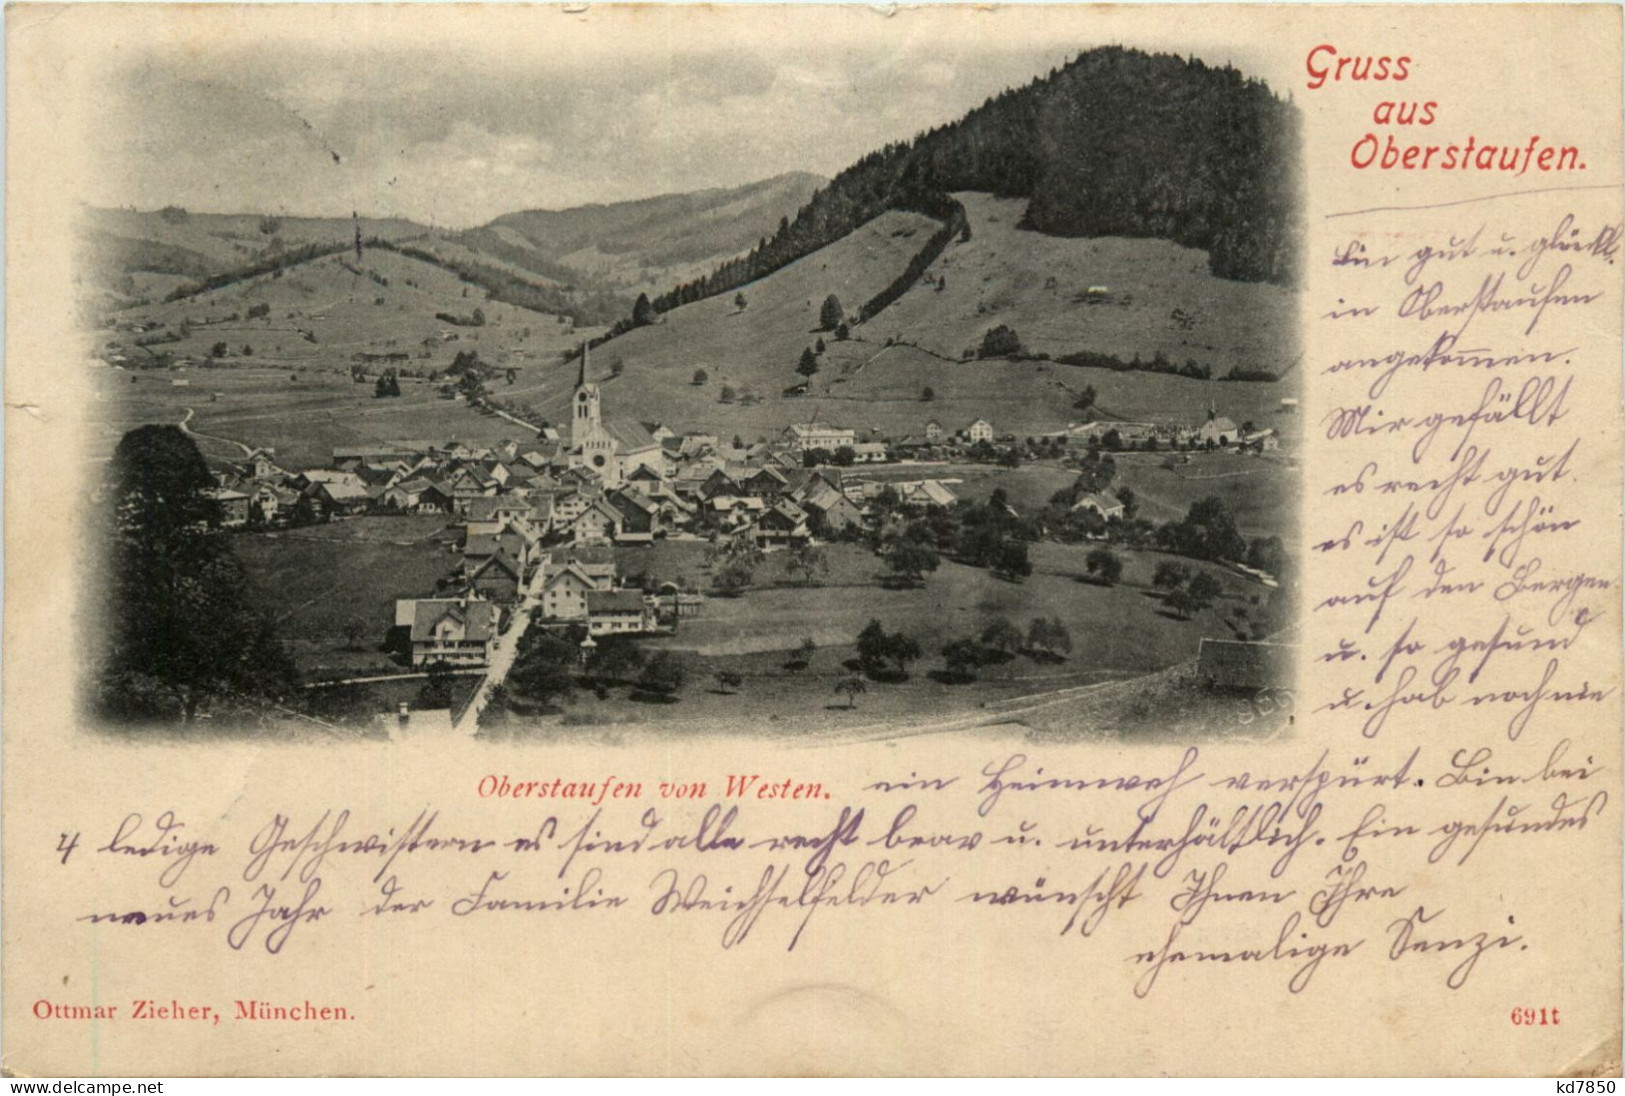 Gruss
aus
Oberstaufen.
Bin gut u. glückl.
in Oberstaufen
angekom̄en.
Mir gefällt
es recht gut.
es ist so schön
auf den Bergen
u. so gesund
u. hab noch nie
Oberstaufen von Westen.
ein Heimweh verspürt. Bin bei
4 ledige Geschwistern es sind alle recht brav u. unterhältlich. Ein gesundes
neues Jahr der Familie Weichselfelder wünscht Ihnen Ihre
ehemalige Senzi.
Ottmar Zieher, München.
691t
www.delcampe.net
kd7850